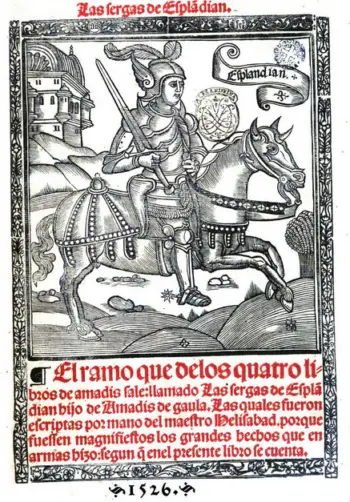 Las sergas de Esplãdian.
Esplandian.
¶ El ramo que delos quatro li
bros de amadis sale: llamado Las sergas de Esplã
dian hijo de Amadis de gaula. Las quales fueron
escriptas por mano del maestro Helisabad. porque
fuessen magnifiestos los grandes hechos que en
armas hizo: segun q̃ enel presente libro se cuenta.
1526.